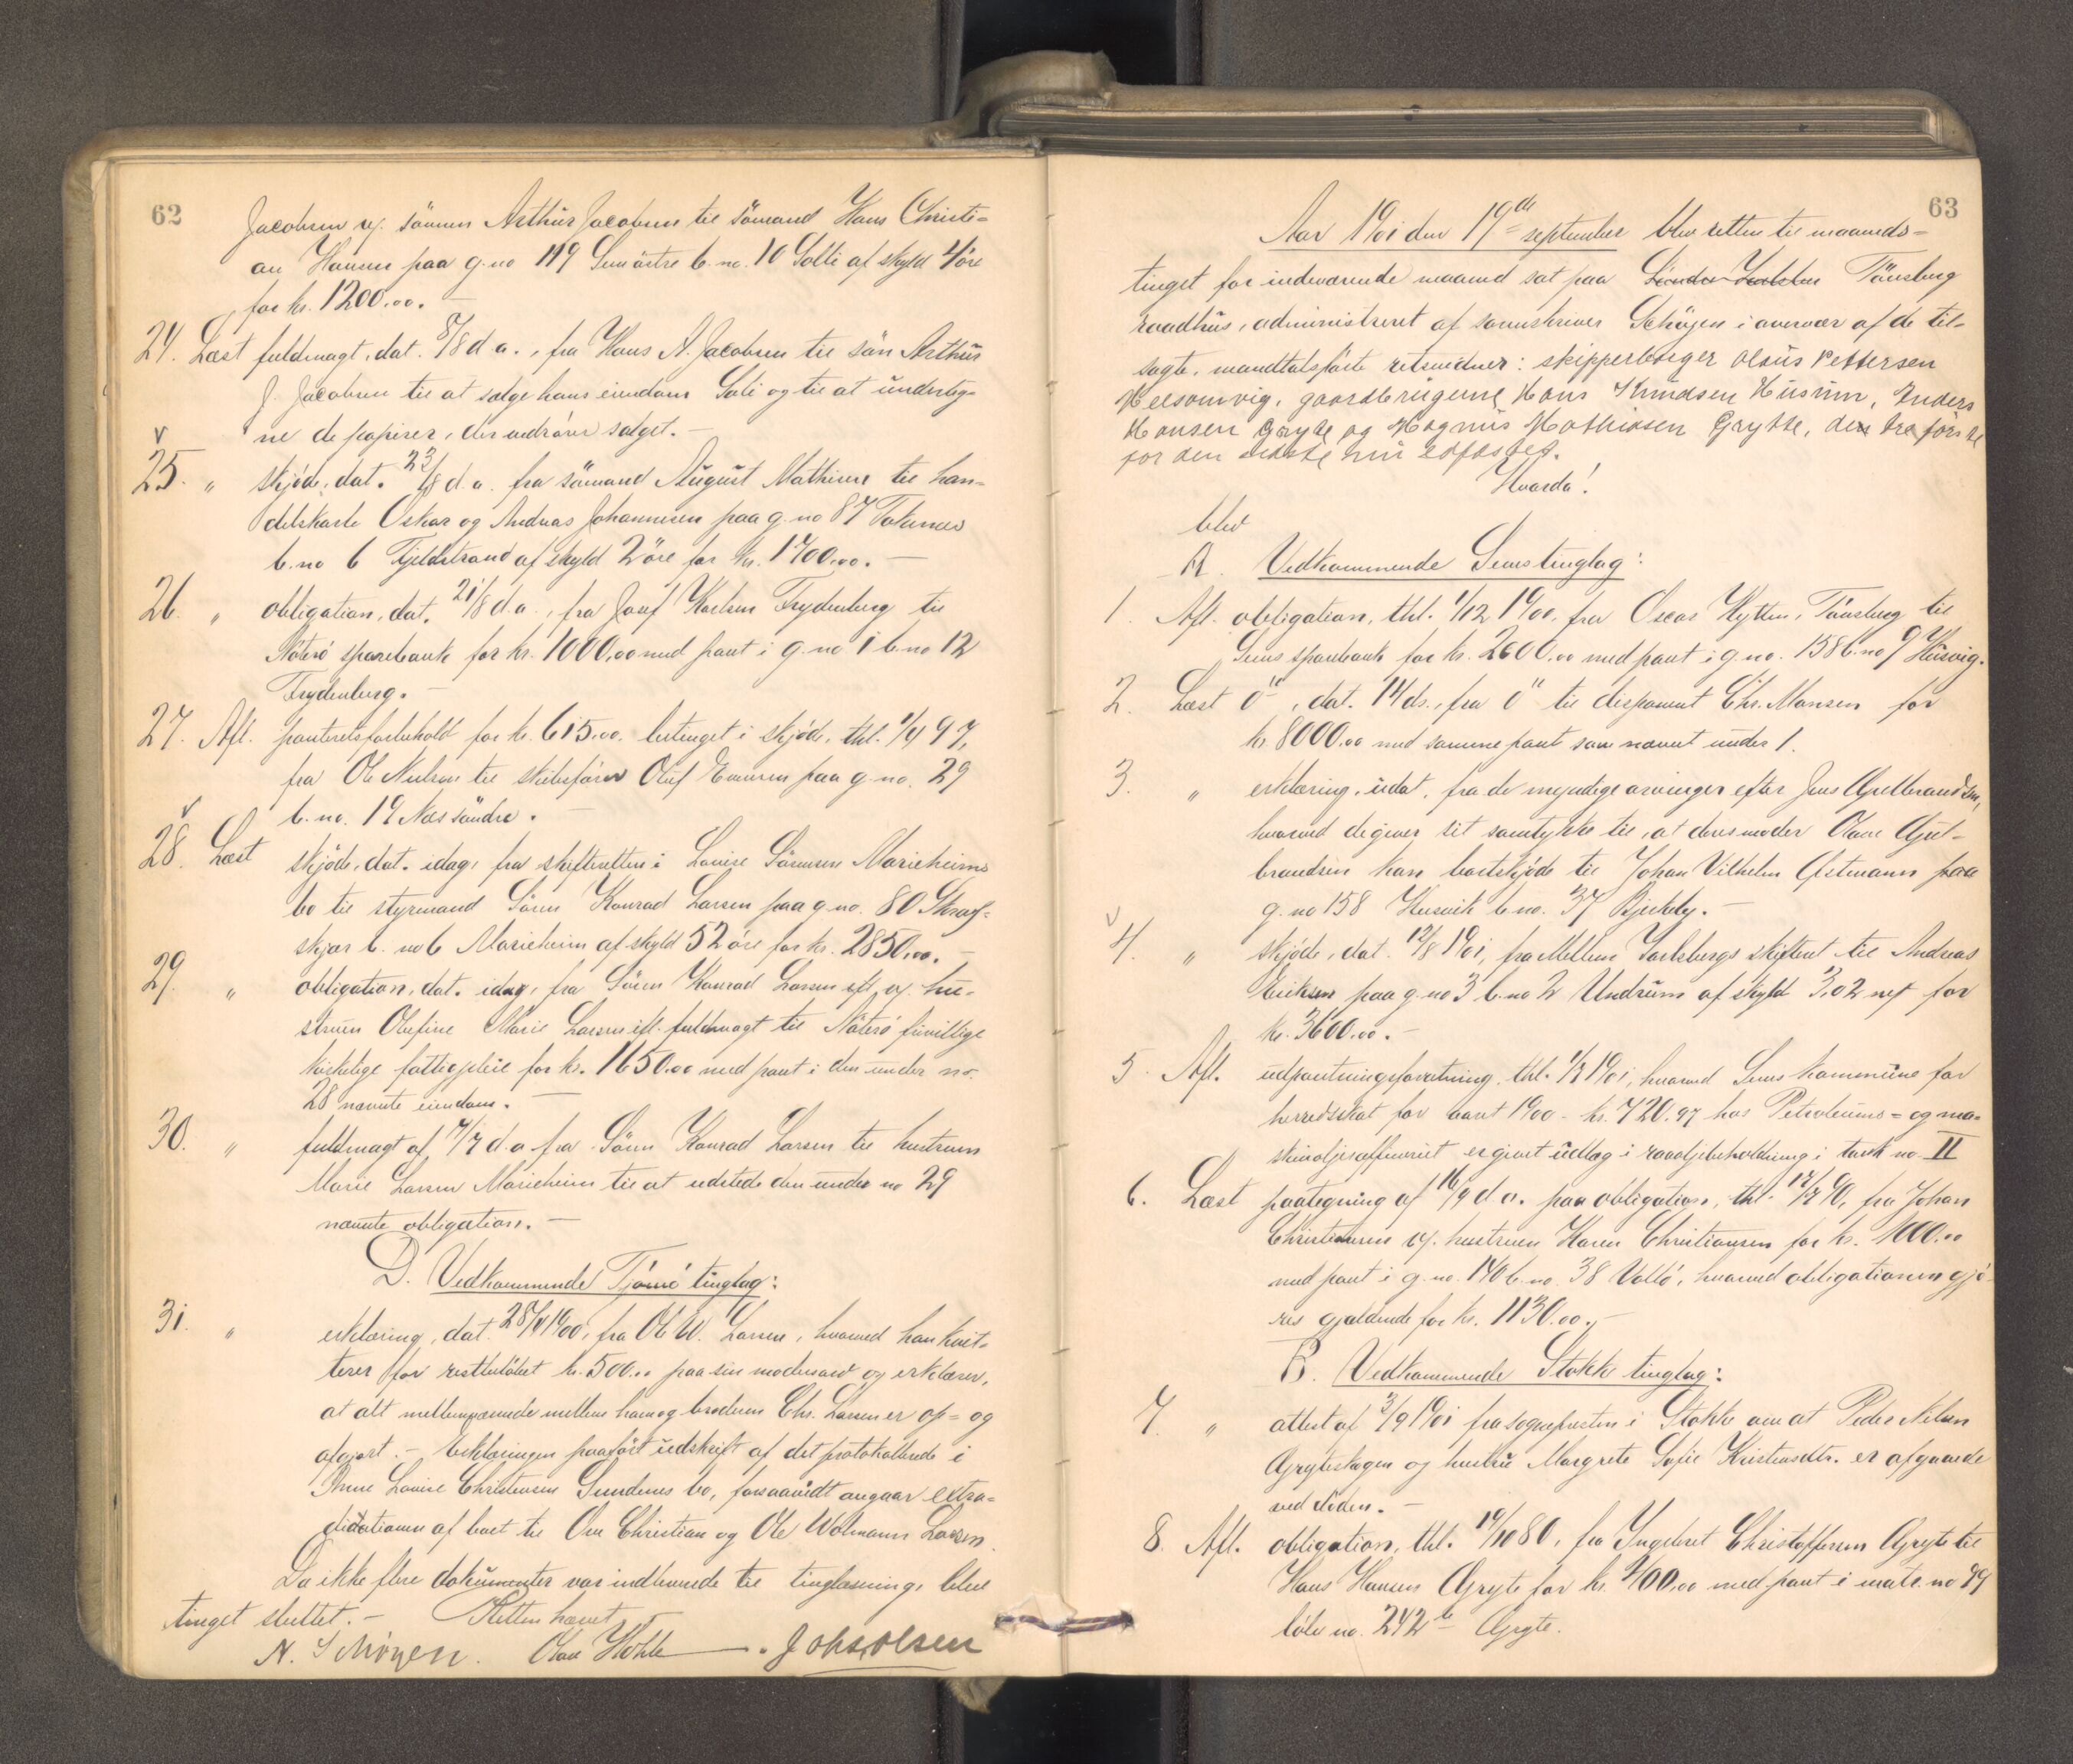 62
Jacobsen v. sønnen Arthur Jacobsen til sømand Hans Christi=
an Hansen paa g.no 119 Sem østre b.no. 10 Solli af skyld 4 øre
for kr. 1200.00. —
24. Læst fuldmagt, dat. 8/8 d.a., fra Hans A. Jacobsen til søn Arthur
J. Jacobsen til at sælge hans eiendom Soli og til at underteg-
ne de papirer, der vedrører salget. —
v
25. " skjøde, dat. 23/8 d.a. fra sømand August Mathisen til han-
delskarle Oskar og Andreas Johannesen paa g.no 87
b.no 6 Fjeldstrand af skyld 2 øre for kr. 1700.00. —
26. " obligation, dat. 21/8 d.a., fra Josef Karlsen Frydenberg til
Nøterø sparebank for kr. 1000.00 med pant i g.no 1 b.no 12
Frydenberg. —
27. Afl. panteretsforbehold for kr. 615.00, betinget i skjøde, thl. 1/4 97,
fra Ole Nielsen til skibsfører Oluf Evensen paa g.no. 29
b.no. 19 Næs søndre. —
v
28. Læst skjøde, dat. idag, fra skifteretten i Louise Sørensen Marieheims
bo til styrmand Søren Konrad Larsen paa g.no. 80 Skraf-
skjær b.no 6 Marieheim af skyld 52 øre for kr. 2850.00. —
29. " obligation, dat. idag, fra Søren Konrad Larsen eft. v. hu-
struen Olefine Marie Larsen ifl. fuldmagt til Nøterø frivillige
kirkelige fattigpleie for kr. 1650.00 med pant i den under no.
28 nævnte eiendom. —
30. " fuldmagt af 7/7 d.a. fra Søren Konrad Larsen til hustruen
Marie Larsen Marieheim til at udstede den under no 29
nævnte obligation. —
D. Vedkommende Tjømø tinglag:
31. " erklæring, dat. 28/4 1900, fra Ole W. Larsen, hvorved han kvit-
terer for restbeløbet kr. 500.00 paa sin mødrenarv og erklærer,
at alt mellemværende mellem ham og broderen Chr. Larsen er op- og
afgjort. — Erklæringen paaført udskrift af det protokollerede i
Anne Louise Christensen Sundenes bo, forsaavidt angaar extra-
ditationen af boet til Ole Christian og Ole Wolmann Larsen.
Da ikke flere dokumenter var indleverede til tinglæsning, blev
tinget sluttet. — Retten hævet
N. Schøyen. Olav Hohle — . Johs. Olsen
63
Aar 1901 den 19de september blev retten til maaneds-
tinget for indeværende maaned sat paa Tønsberg
raadhus, administreret af sorenskriver Schøyen i overvær af de til-
sagte, mandtalsførte retsvidner: skipperborger Olaus Pettersen
Helsomvig, gaardbrugerne Hans Knudsen Husum, Anders
Hansen Gryte og Magnus Mathiasen Grytte, den tre første
for den sidste nu edfæstet.
Hvorda!
blev
A. Vedkommende Sems tinglag:
1. Afl. obligation, thl. 1/12 1900, fra Oscar Hytten, Tønsberg til
Sems sparebank for kr. 2600.00 med pant i g.no. 158 b.no 9 Husvig.
2. Læst o", dat. 14 ds., fra o" til disponent Chr. Monsen for
kr. 8000.00 med samme pant som nævnt under 1.
3. " erklæring, udat., fra de myndige arvinger efter Jens Gulbrandsen,
hvorved de giver sit samtykke til, at deres moder Olave Gul-
brandsen kan bortskjøde til Johan Vilhelm Østmann paa
g.no 158 Husvik b.no. 37 Bjerkely. —
v
4. " skjøde, dat. 12/8 1901, fra Mellem Jarlsbergs skifteret til Andreas
Eriksen paa g.no 3 b.no 2 Undrum af skyld 3,02 af for
kr. 3600.00. —
5. Afl. udpantningsforretning, thl. 1/7 1901, hvorved Sems kommune for
herredsskat for aaret 1900 - kr. 720.97 hos Petroleums= og ma-
skinoljeraffineriet er givet udlæg i raaoljebeholdning i tank no. II
6. Læst paategning af 16/9 d.a. paa obligation, thl. 17/7 90, fra Johan
Christiansen v. hustruen Karen Christiansen for kr. 1000.00
med pant i g.no. 140 b.no. 38 Vallø, hvorved obligationen gjø-
res gjældende for kr. 1130.00. —
B. Vedkommende Stokke tinglag:
7. " attest af 3/9 1901 fra sognepresten i Stokke om at Peder Nilsen
Gryteskogen og hustru Margrete Sofie Kristiansdtr. er afgaaede
ved døden. —
8. Afl. obligation, thl. 19/10 80, fra Ingebret Christoffersen Gryte til
Hans Hansen Gryte for kr. 400.00 med pant i matr. no 79
løbe no. 242 b Gryte.